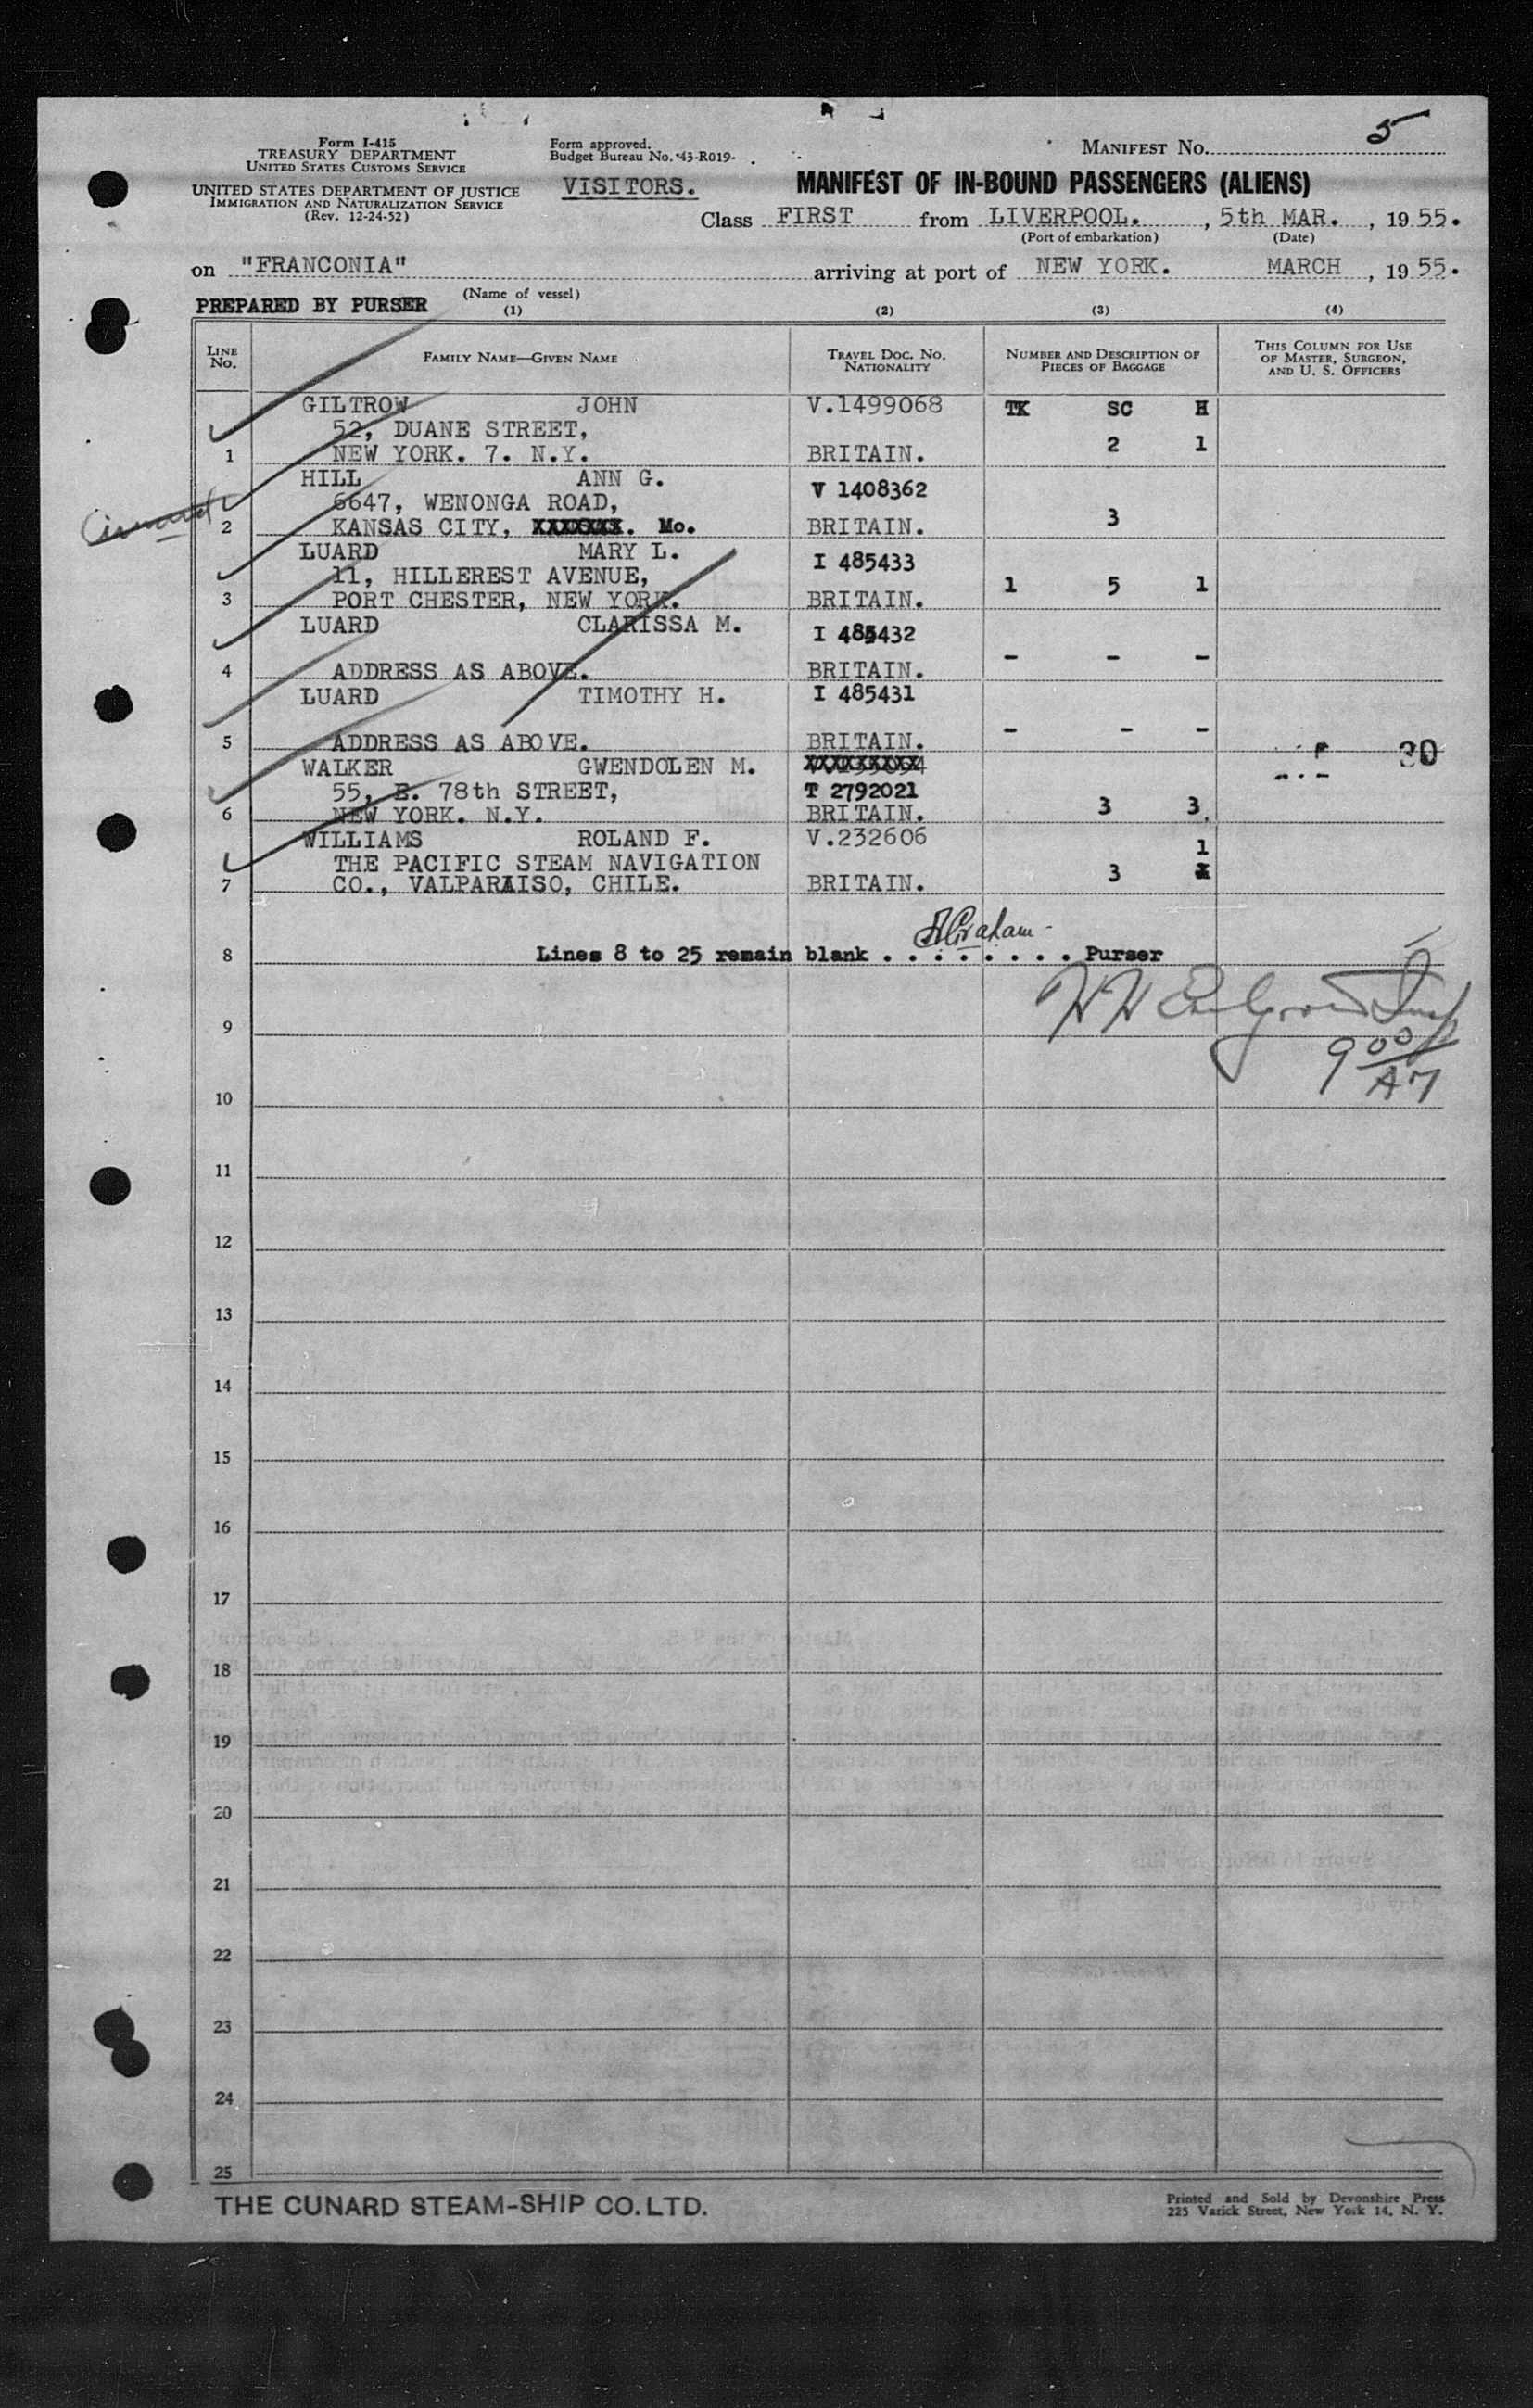 Form I-415
TREASURY DEPARTMENT
UNITED STATES CUSTOMS SERVICE
UNITED STATES DEPARTMENT OF JUSTICE
IMMIGRATION AND NATURALIZATION SERVICE
(Rev. 12-24-52)
Form approved.
Budget Bureau No. 43-R019-
VISITORS.
MANIFEST NO. 5
MANIFEST OF IN-BOUND PASSENGERS (ALIENS)
Class FIRST from LIVERPOOL. , 5th MAR. , 19 55.
(Port of embarkation) (Date)
on "FRANCONIA" arriving at port of NEW YORK. MARCH , 19 55.
(Name of vessel)
PREPARED BY PURSER
(1) (2) (3) (4)
LINE NO. FAMILY NAME—GIVEN NAME TRAVEL DOC. NO. NATIONALITY NUMBER AND DESCRIPTION OF PIECES OF BAGGAGE THIS COLUMN FOR USE OF MASTER, SURGEON, AND U. S. OFFICERS
GILTROW JOHN V.1499068 TK SC H
52, DUANE STREET,
1 NEW YORK. 7. N.Y. BRITAIN. 2 1
HILL ANN G. V 1408362
6647, WENONGA ROAD,
2 KANSAS CITY, XXXXXXX. Mo. BRITAIN. 3
LUARD MARY L. I 485433
11, HILLEREST AVENUE,
3 PORT CHESTER, NEW YORK. BRITAIN. 1 5 1
LUARD CLARISSA M. I 485432
4 ADDRESS AS ABOVE. BRITAIN. - - -
LUARD TIMOTHY H. I 485431
5 ADDRESS AS ABOVE. BRITAIN. - - -
30
WALKER GWENDOLEN M.
55, E. 78th STREET, T 2792021
6 NEW YORK. N.Y. BRITAIN. 3 3.
WILLIAMS ROLAND F. V.232606
THE PACIFIC STEAM NAVIGATION 1
7 CO., VALPARAISO, CHILE. BRITAIN. 3
8 Lines 8 to 25 remain blank . . . . . . . . Purser
Graham
9
9 00 AM
10
11
12
13
14
15
16
17
18
19
20
21
22
23
24
25
THE CUNARD STEAM-SHIP CO. LTD.
Printed and Sold by Devonshire Press
225 Varick Street, New York 14, N. Y.